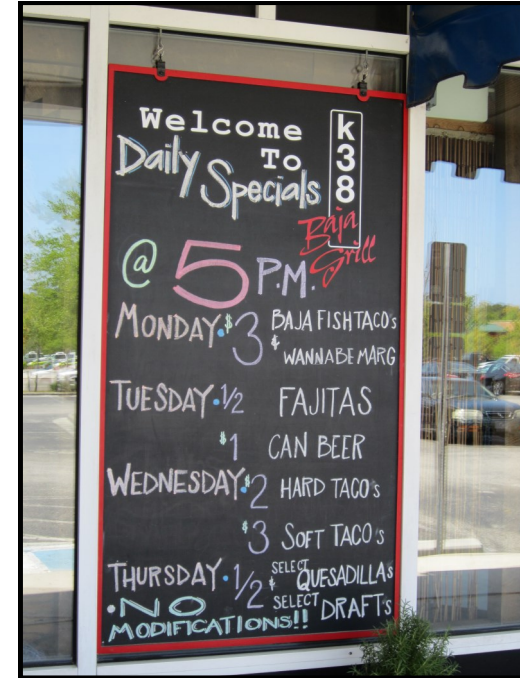 Welcome
To
k38
Baja
Grill
Daily Specials
@ 5 P.M.
MONDAY · $3 BAJA FISH TACO's
& WANNABE MARG
TUESDAY · 1/2 FAJITAS
$1 CAN BEER
WEDNESDAY · $2 HARD TACO's
$3 SOFT TACO's
THURSDAY · 1/2 SELECT QUESADILLAs
& SELECT DRAFT's
· NO
MODIFICATIONS!!